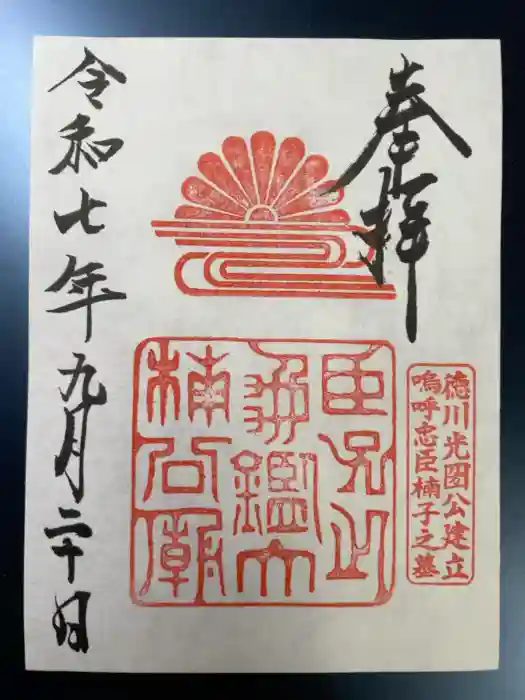 奉拝
徳川光圀公建立
嗚呼忠臣楠子之墓
臣子之
龜鑑大
楠公廟
令和七年九月二十日